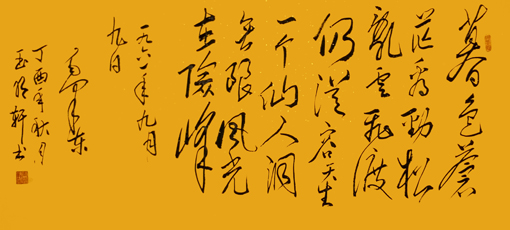 暮色苍
茫看劲松
乱云飞渡
仍从容天生
一个仙人洞
无限风光
在险峰
一九六一年九月
九日
毛泽东
丁酉年秋月
玉明轩书